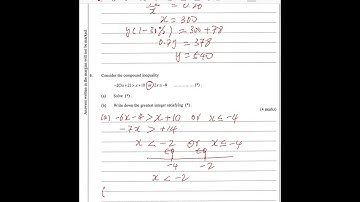 = 0.20
x = 300
y(1-30%) = 300+78
0.7y = 378
y = 540
Answers written in the margins will not be marked.
6.
Consider the compound inequality
> x+10 or 2x ≤ -8 ............ (*) .
(a) Solve (*) .
(b) Write down the greatest integer satisfying (*) .
(4 marks)
(a) -6x-4 > x+10 or x≤-4
-7x > +14
x < -2 or x≤-4
-4 -2
x < -2